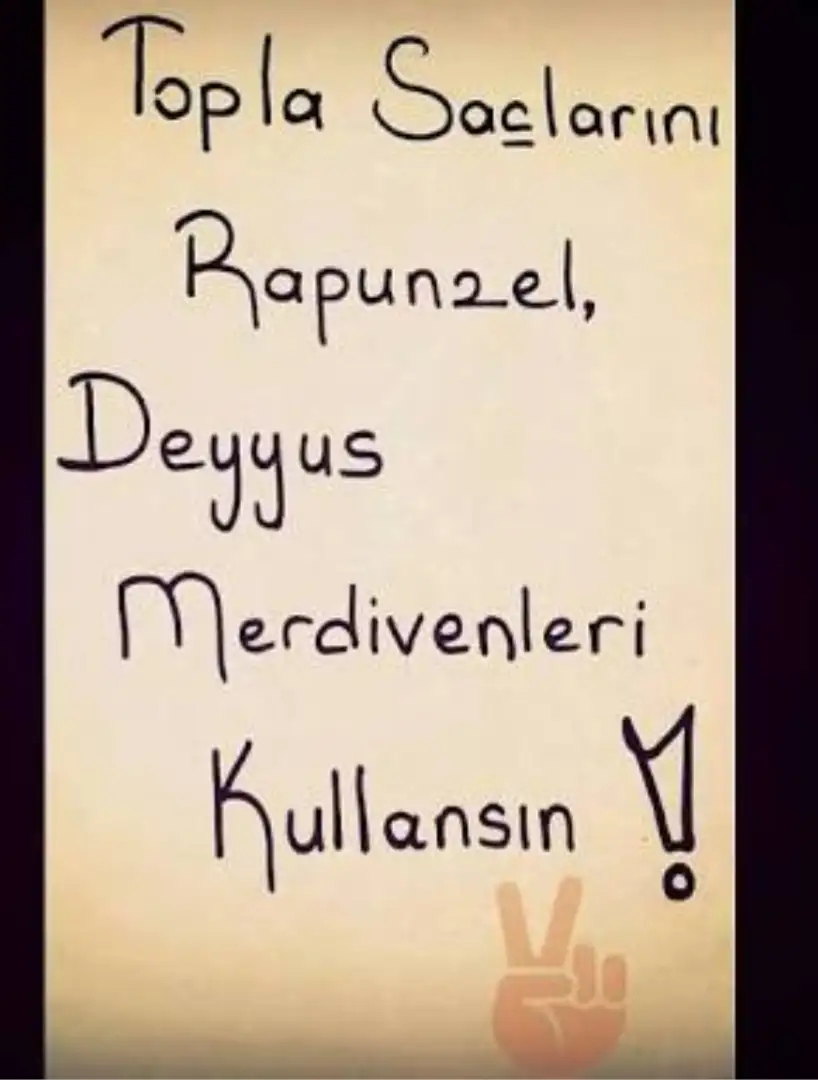 Topla Saçlarını
Rapunzel,
Deyyus
Merdivenleri
Kullansın !